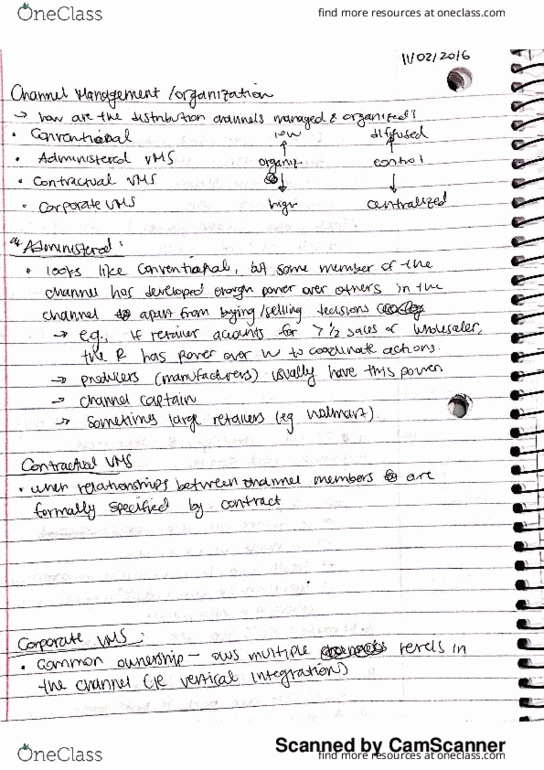 OneClass
find more resources at oneclass.com
11/02/2016
Channel Management / organization
→ how are the distribution channels managed & organized?
• Conventional low diffused
• Administered VMS organiz control
• Contractual VMS
• Corporate VMS high centralized
Administered:
• looks like conventional, but some member of the
channel has developed enough power over others in the
channel apart from buying/selling decisions
→ e.g., if retailer accounts for > 1/2 sales of wholesaler,
the R has power over W to coordinate actions.
→ producers (manufacturers) usually have this power
→ channel captain
→ Sometimes large retailers (eg walmart)
Contractual VMS
• when relationships between channel members are
formally specified by contract
Corporate VMS:
• Common ownership - owns multiple levels in
the channel (ie vertical integrations)
Scanned by CamScanner
OneClass
find more resources at oneclass.com